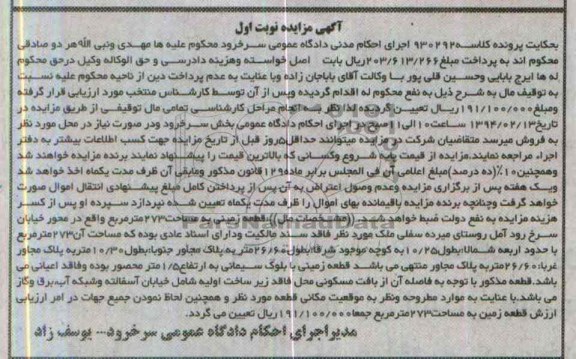 آگهی مزایده نوبت اول
بحکایت پرونده کلاسه ۹۳۰۲۹۲ اجرای احکام مدنی دادگاه عمومی سرخرود محکوم علیه ها مهدی ونبی الله هر دو صادقی
محکوم اند به پرداخت مبلغ ۲۰۳/۶۱۳/۲۶۶ ریال بابت اصل خواسته وهزینه دادرسی و حق الوکاله وکیل درحق محکوم
له ها ایرج بابایی وحسین قلی پور با وکالت آقای باباجان زاده وبا عنایت به عدم پرداخت دین از ناحیه محکوم علیه نسبت
به توقیف مال به شرح ذیل به نفع محکوم له اقدام گردیده وپس از آن توسط کارشناس منتخب مورد ارزیابی قرار گرفته
ومبلغ ۱۹۱/۱۰۰/۰۰۰ ریال تعیین گردیده لذا نظر به انجام مراحل کارشناسی تمامی مال توقیفی از طریق مزایده در
تاریخ ۱۳۹۴/۰۲/۱۳ ساعت ۱۰ الی ۱۱ صبح در اجرای احکام دادگاه عمومی بخش سرخرود ودر صورت نیاز در محل مورد نظر
به فروش میرسد متقاضیان شرکت در مزایده میتوانند حداقل ۵ روز قبل از تاریخ مزایده جهت کسب اطلاعات بیشتر به دفتر
اجراء مراجعه نمایند.مزایده از قیمت پایه شروع وکسانی که بالاترین قیمت را پیشنهاد نمایند برنده مزایده خواهند شد
وهمچنین ۱۰٪(ده درصد)مبلغ اعلامی آن فی المجلس برابر ماده ۱۲۹ قانون مذکور ومابقی آن ظرف مدت یکماه اخذ خواهد شد
ویک هفته پس از برگزاری مزایده وعدم وصول اعتراض به آن پس از پرداختن کامل مبلغ پیشنهادی انتقال اموال صورت
خواهد گرفت وچنانچه برنده مزایده باقیمانده بهای اموال را ظرف مدت یکماه تعیین شده نپردازد سپرده او پس از کسر
هزینه مزایده به نفع دولت ضبط خواهد شد. ((مشخصات مال))قطعه زمینی به مساحت ۲۷۳ مترمربع واقع در محور خیابان
سرخ رود آمل روستای میرده سفلی ملک مورد نظر فاقد سند مالکیت ودارای اسناد عادی بوده که مساحت آن ۲۷۳ مترمربع
با حدود اربعه شمالا:بطول ۱۰/۲۵ به کوچه موجود شرقا:بطول ۲۶/۶۰ متربه پلاک مجاور جنوبا:بطول ۱۰/۳۰ متربه پلاک مجاور
غربا:۲۶/۶۰ متربه پلاک مجاور منتهی می باشد قطعه زمینی با بلوک سیمانی به ارتفاع ۱/۵ متر محصور بوده وفاقد اعیانی می
باشد.قطعه مذکور با توجه به فاصله آن از بافت مسکونی محل فاقد زیر ساخت اولیه شامل خیابان آسفالته وشبکه آب،برق وگاز
می باشد.با عنایت به موارد مطروحه ونظر به موقعیت مکانی قطعه مورد نظر و همچنین لحاظ نمودن جمیع جهات در امر ارزیابی
ارزش قطعه زمین به مساحت ۲۷۳ مترمربع جمعا ۱۹۱/۱۰۰/۰۰۰ ریال تعیین می گردد.
مدیراجرای احکام دادگاه عمومی سرخرود... یوسف زاد